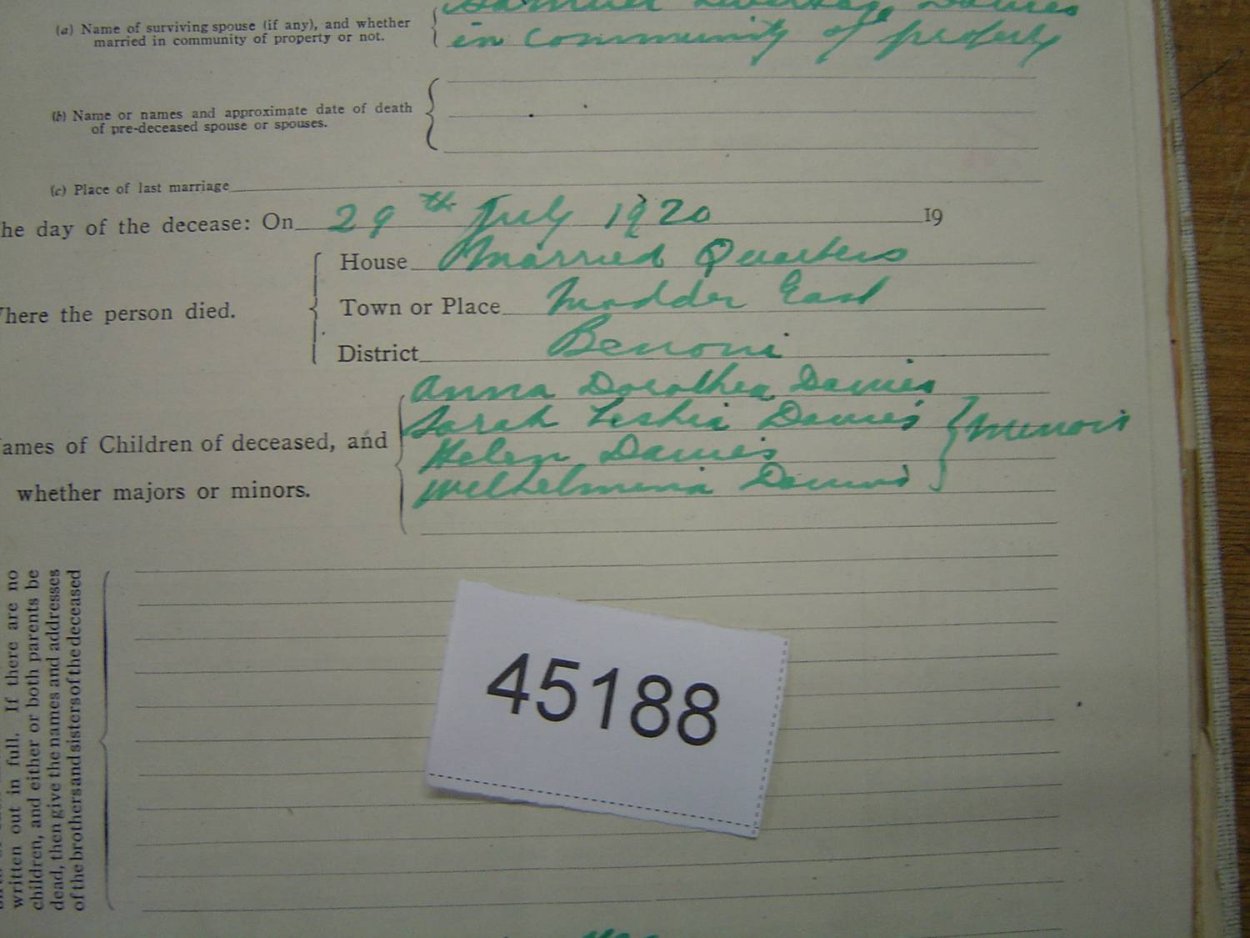 (a) Name of surviving spouse (if any), and whether
married in community of property or not.
Samuel Davies
in community of property
(b) Name or names and approximate date of death
of pre-deceased spouse or spouses.
(c) Place of last marriage
he day of the decease: On 29th July 1920 19
here the person died.
House Married Quarters
Town or Place Modder East
District Benoni
ames of Children of deceased, and
whether majors or minors.
Anna Dorothea Davies
Sarah Davies
Helen Davies
Wilhelmina Davies
Minors
written out in full. If there are no
children, and either or both parents be
dead, then give the names and addresses
of the brothers and sisters of the deceased
45188